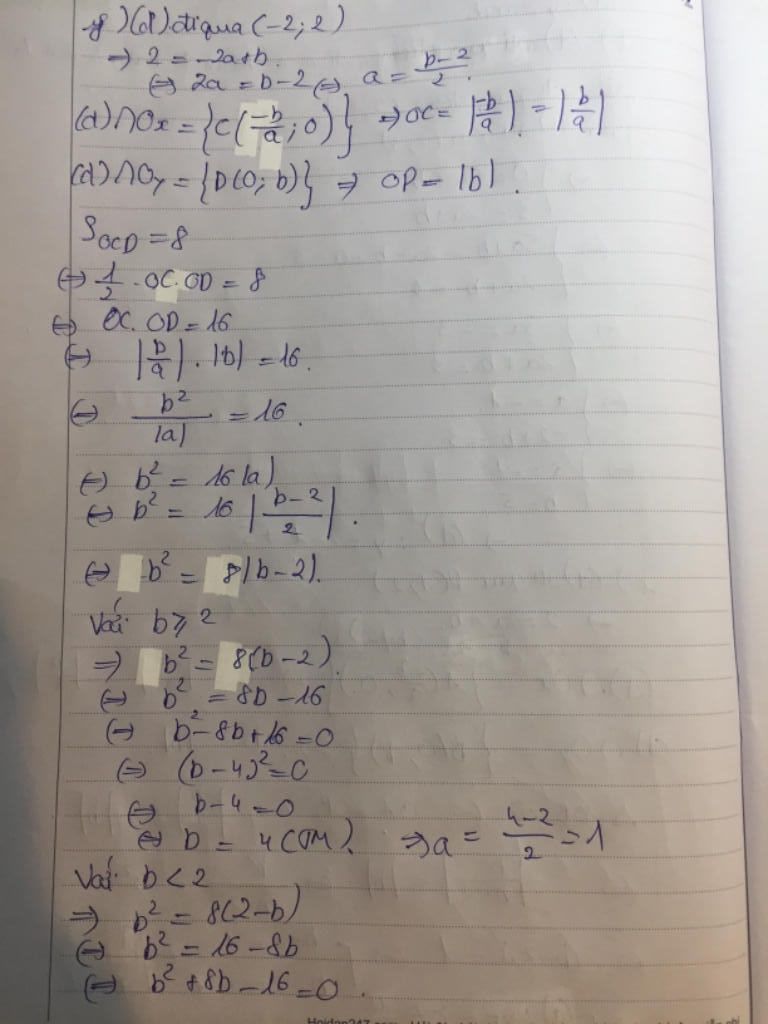 g) (d) đi qua (-2; 2)
⇒ 2 = -2a+b.
⇔ 2a = b-2 ⇔ a = \frac{b-2}{2}.
(d)∩Ox = {C(\frac{-b}{a}; 0)} ⇒ OC = |\frac{-b}{a}| = |\frac{b}{a}|
(d)∩Oy = {D(0; b)} ⇒ OD = |b|.
S_{OCD} = 8
⇔ \frac{1}{2} . OC. OD = 8
⇔ OC. OD = 16
⇔ |\frac{b}{a}| . |b| = 16.
⇔ \frac{b^2}{|a|} = 16.
⇔ b^2 = 16|a|
⇔ b^2 = 16 |\frac{b-2}{2}|.
⇔ b^2 = 8|b-2|.
Với b ≥ 2
⇒ b^2 = 8(b-2).
⇔ b^2 = 8b - 16
⇔ b^2 - 8b + 16 = 0
⇔ (b-4)^2 = 0
⇔ b-4 = 0
⇔ b = 4 (TM). ⇒ a = \frac{4-2}{2} = 1
Với b < 2
⇒ b^2 = 8(2-b)
⇔ b^2 = 16 - 8b
⇔ b^2 + 8b - 16 = 0.